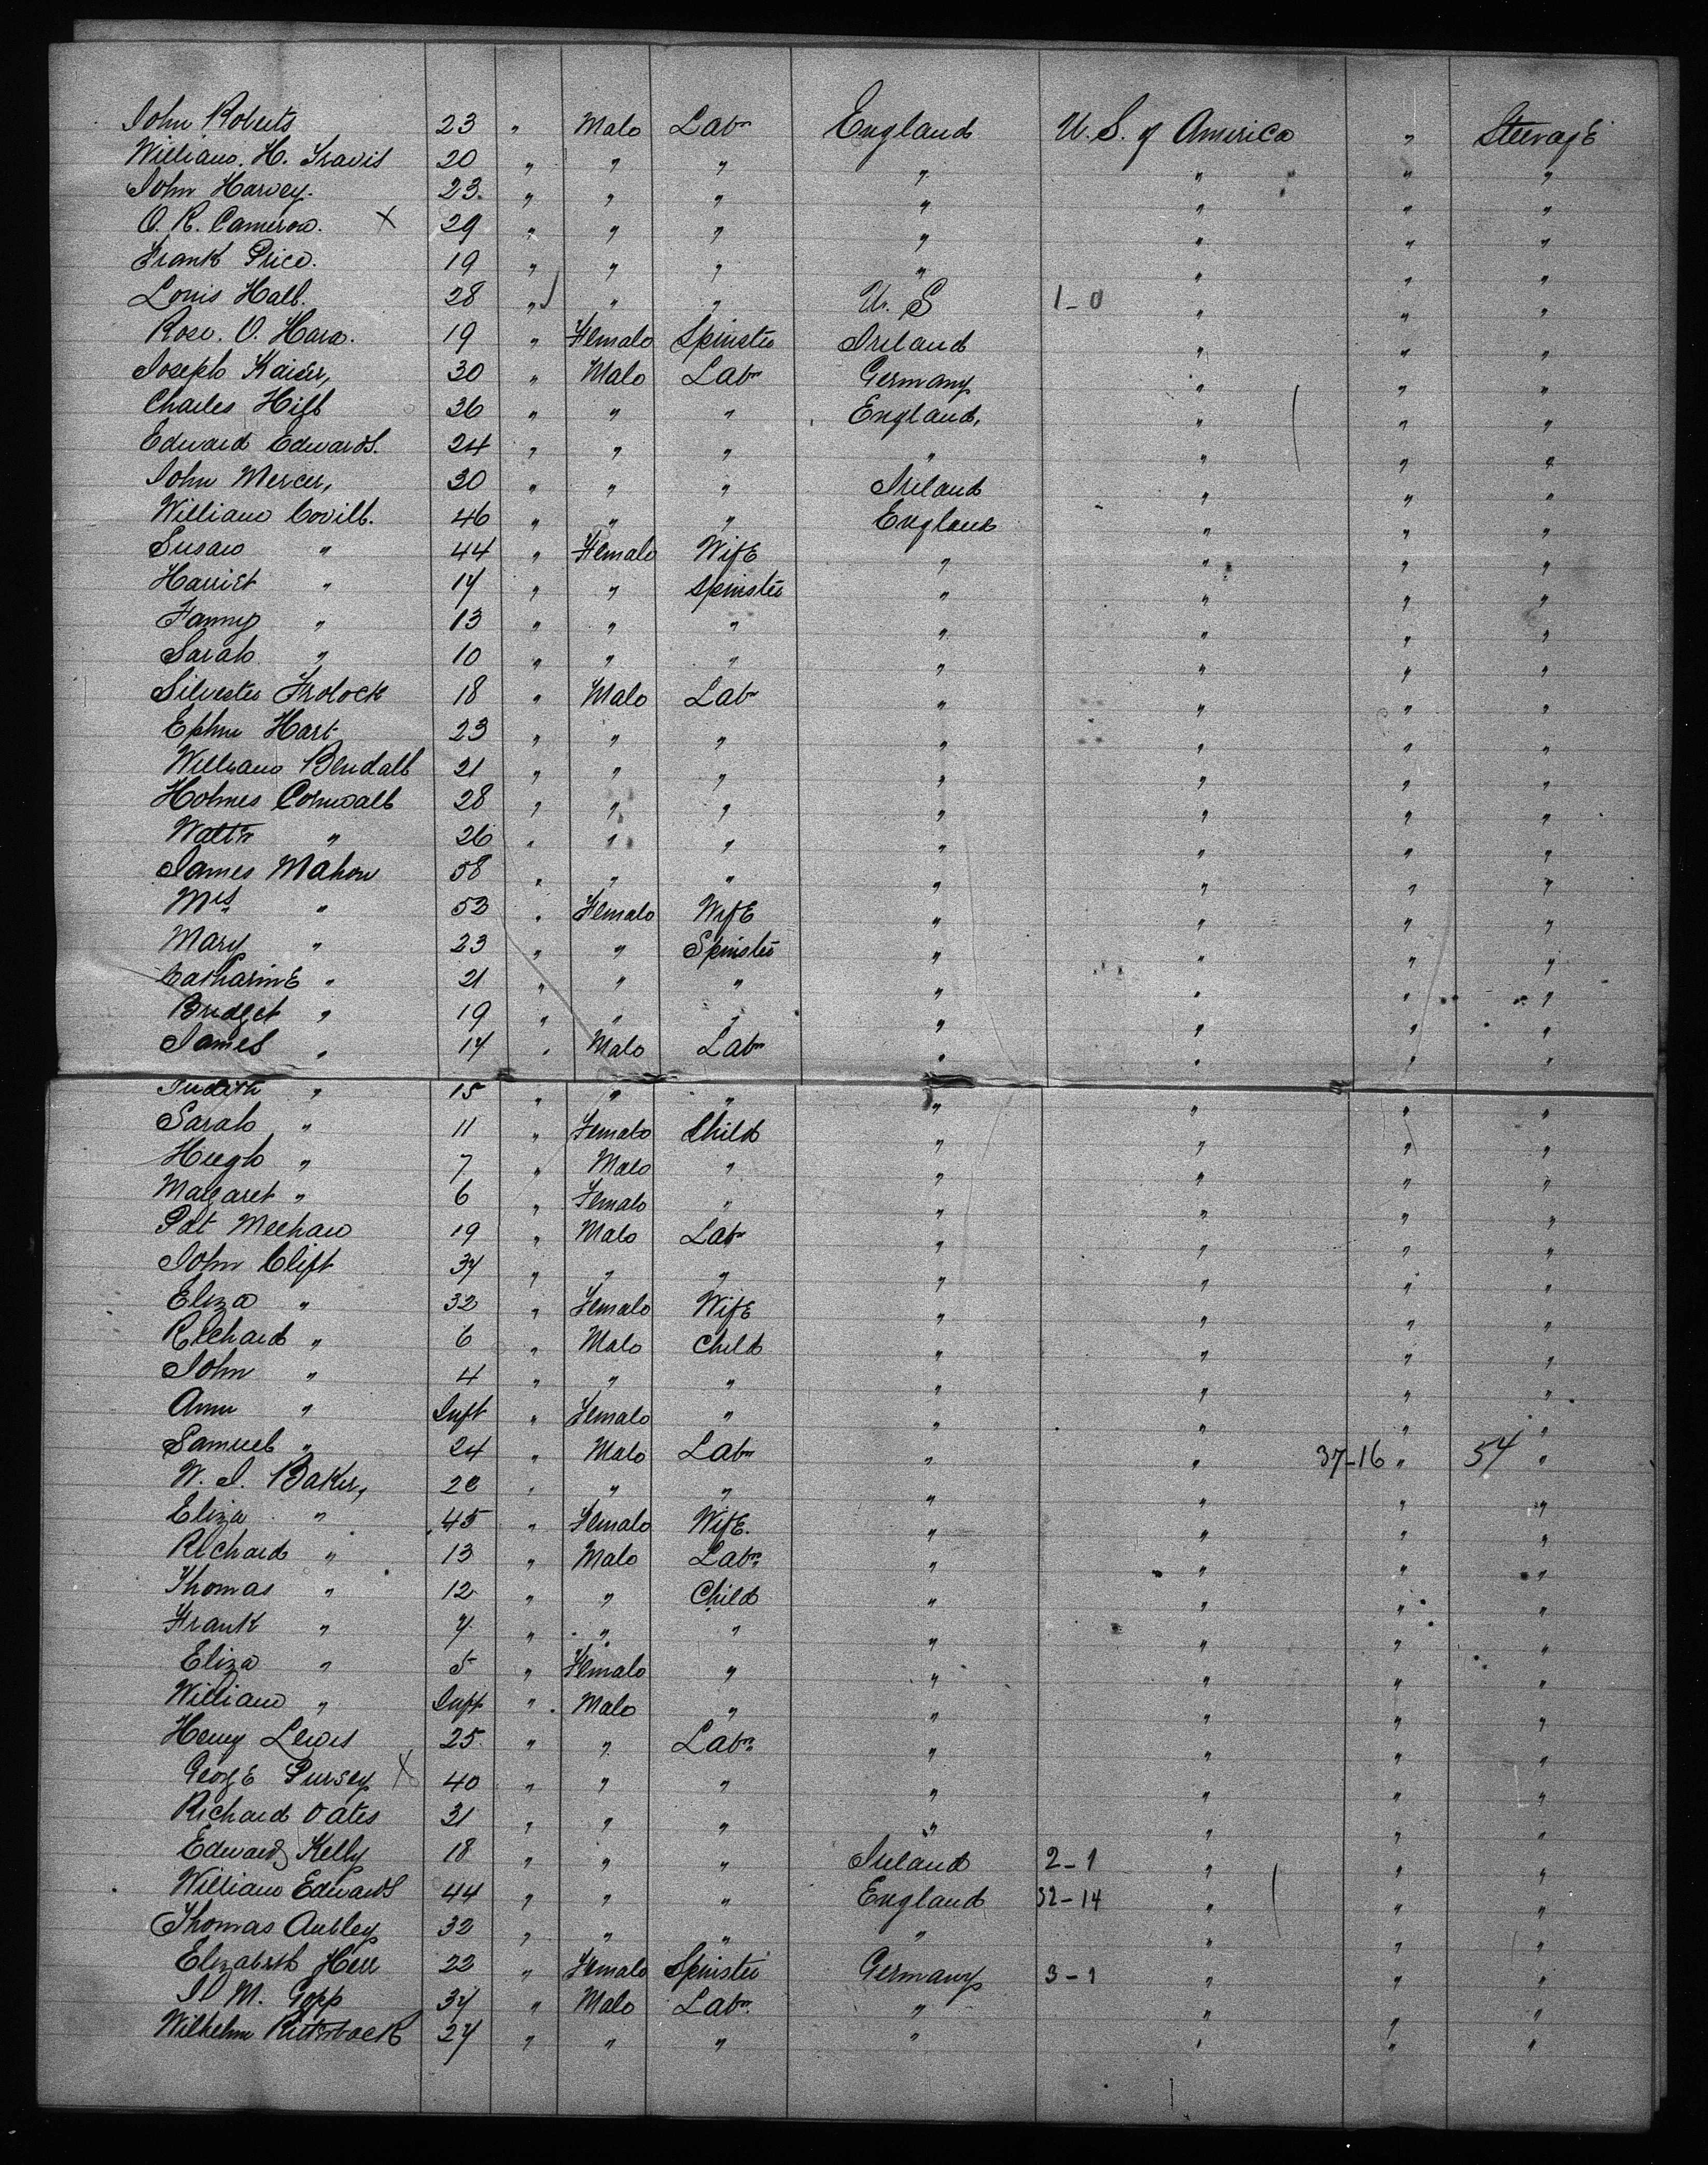 John Roberts 23 " Male Labr England U.S. of America " Steerage
William. H. Travis 20 " " " " " " "
John Harvey. 23. " " " " " " "
O. R. Cameron. X 29 " " " " " " "
Frank Price. 19 " " " " " " "
Louis Hall. 28 " " " U. S 1-0 " " "
Rose. O. Hara. 19 " Female Spinster Ireland " " "
Joseph Kaiser, 30 " Male Labr Germany " " "
Charles Hill 36 " " " England, " " "
Edward Edwards. 24 " " " " " " "
John Mercer, 30 " " " Ireland " " "
William Covill. 46 " " " England " " "
Susan " 44 " Female Wife " " " "
Harriet " 14 " " Spinster " " " "
Fanny " 13 " " " " " " "
Sarah " 10 " " " " " " "
Silvester Trolock 18 " Male Labr " " " "
Ephm Hart 23 " " " " " " "
William Bendall 21 " " " " " " "
Holmes Cornwall 28 " " " " " " "
Waltr " 26 " " " " " " "
James Mahon 58 " " " " " " "
Mrs " 52 " Female Wife " " " "
Mary " 23 " " Spinster " " " "
Catharine " 21 " " " " " " "
Bridget " 19 " " " " " " "
James " 17 " Male Labr " " " "
Judith " 15 " " " " " " "
Sarah " 11 " Female Child " " " "
Hugh " 7 " Male " " " " "
Margaret " 6 " Female " " " " "
Pat Meehan 19 " Male Labr " " " "
John Clift 34 " " " " " " "
Eliza " 32 " Female Wife " " " "
Richard " 6 " Male Child " " " "
John " 4 " " " " " " "
Ann " Inft " Female " " " " "
Samuel " 24 " Male Labr " " 37-16 " 54 "
W. J. Baker, " " " " " " "
Eliza " 45 " Female Wife. " " " "
Richard " 13 " Male Labr " " " "
Thomas " 12 " " Child " " " "
Frank " 7 " " " " " " "
Eliza " 5 " Female " " " " "
William " Inft " Male " " " " "
Henry Lewis 25 " " Labr " " " "
George Pursey X 40 " " " " " " "
Richard Oates 31 " " " " " " "
Edward Kelly 18 " " " Ireland 2-1 " " "
William Edwards 44 " " " England 32-14 " " "
Thomas Aubley 32 " " " " " " "
Elizabeth Herr 22 " Female Spinster Germany 3-1 " " "
M. Gopp 34 " Male Labr " " " "
Wilhelm 27 " " " " " " "